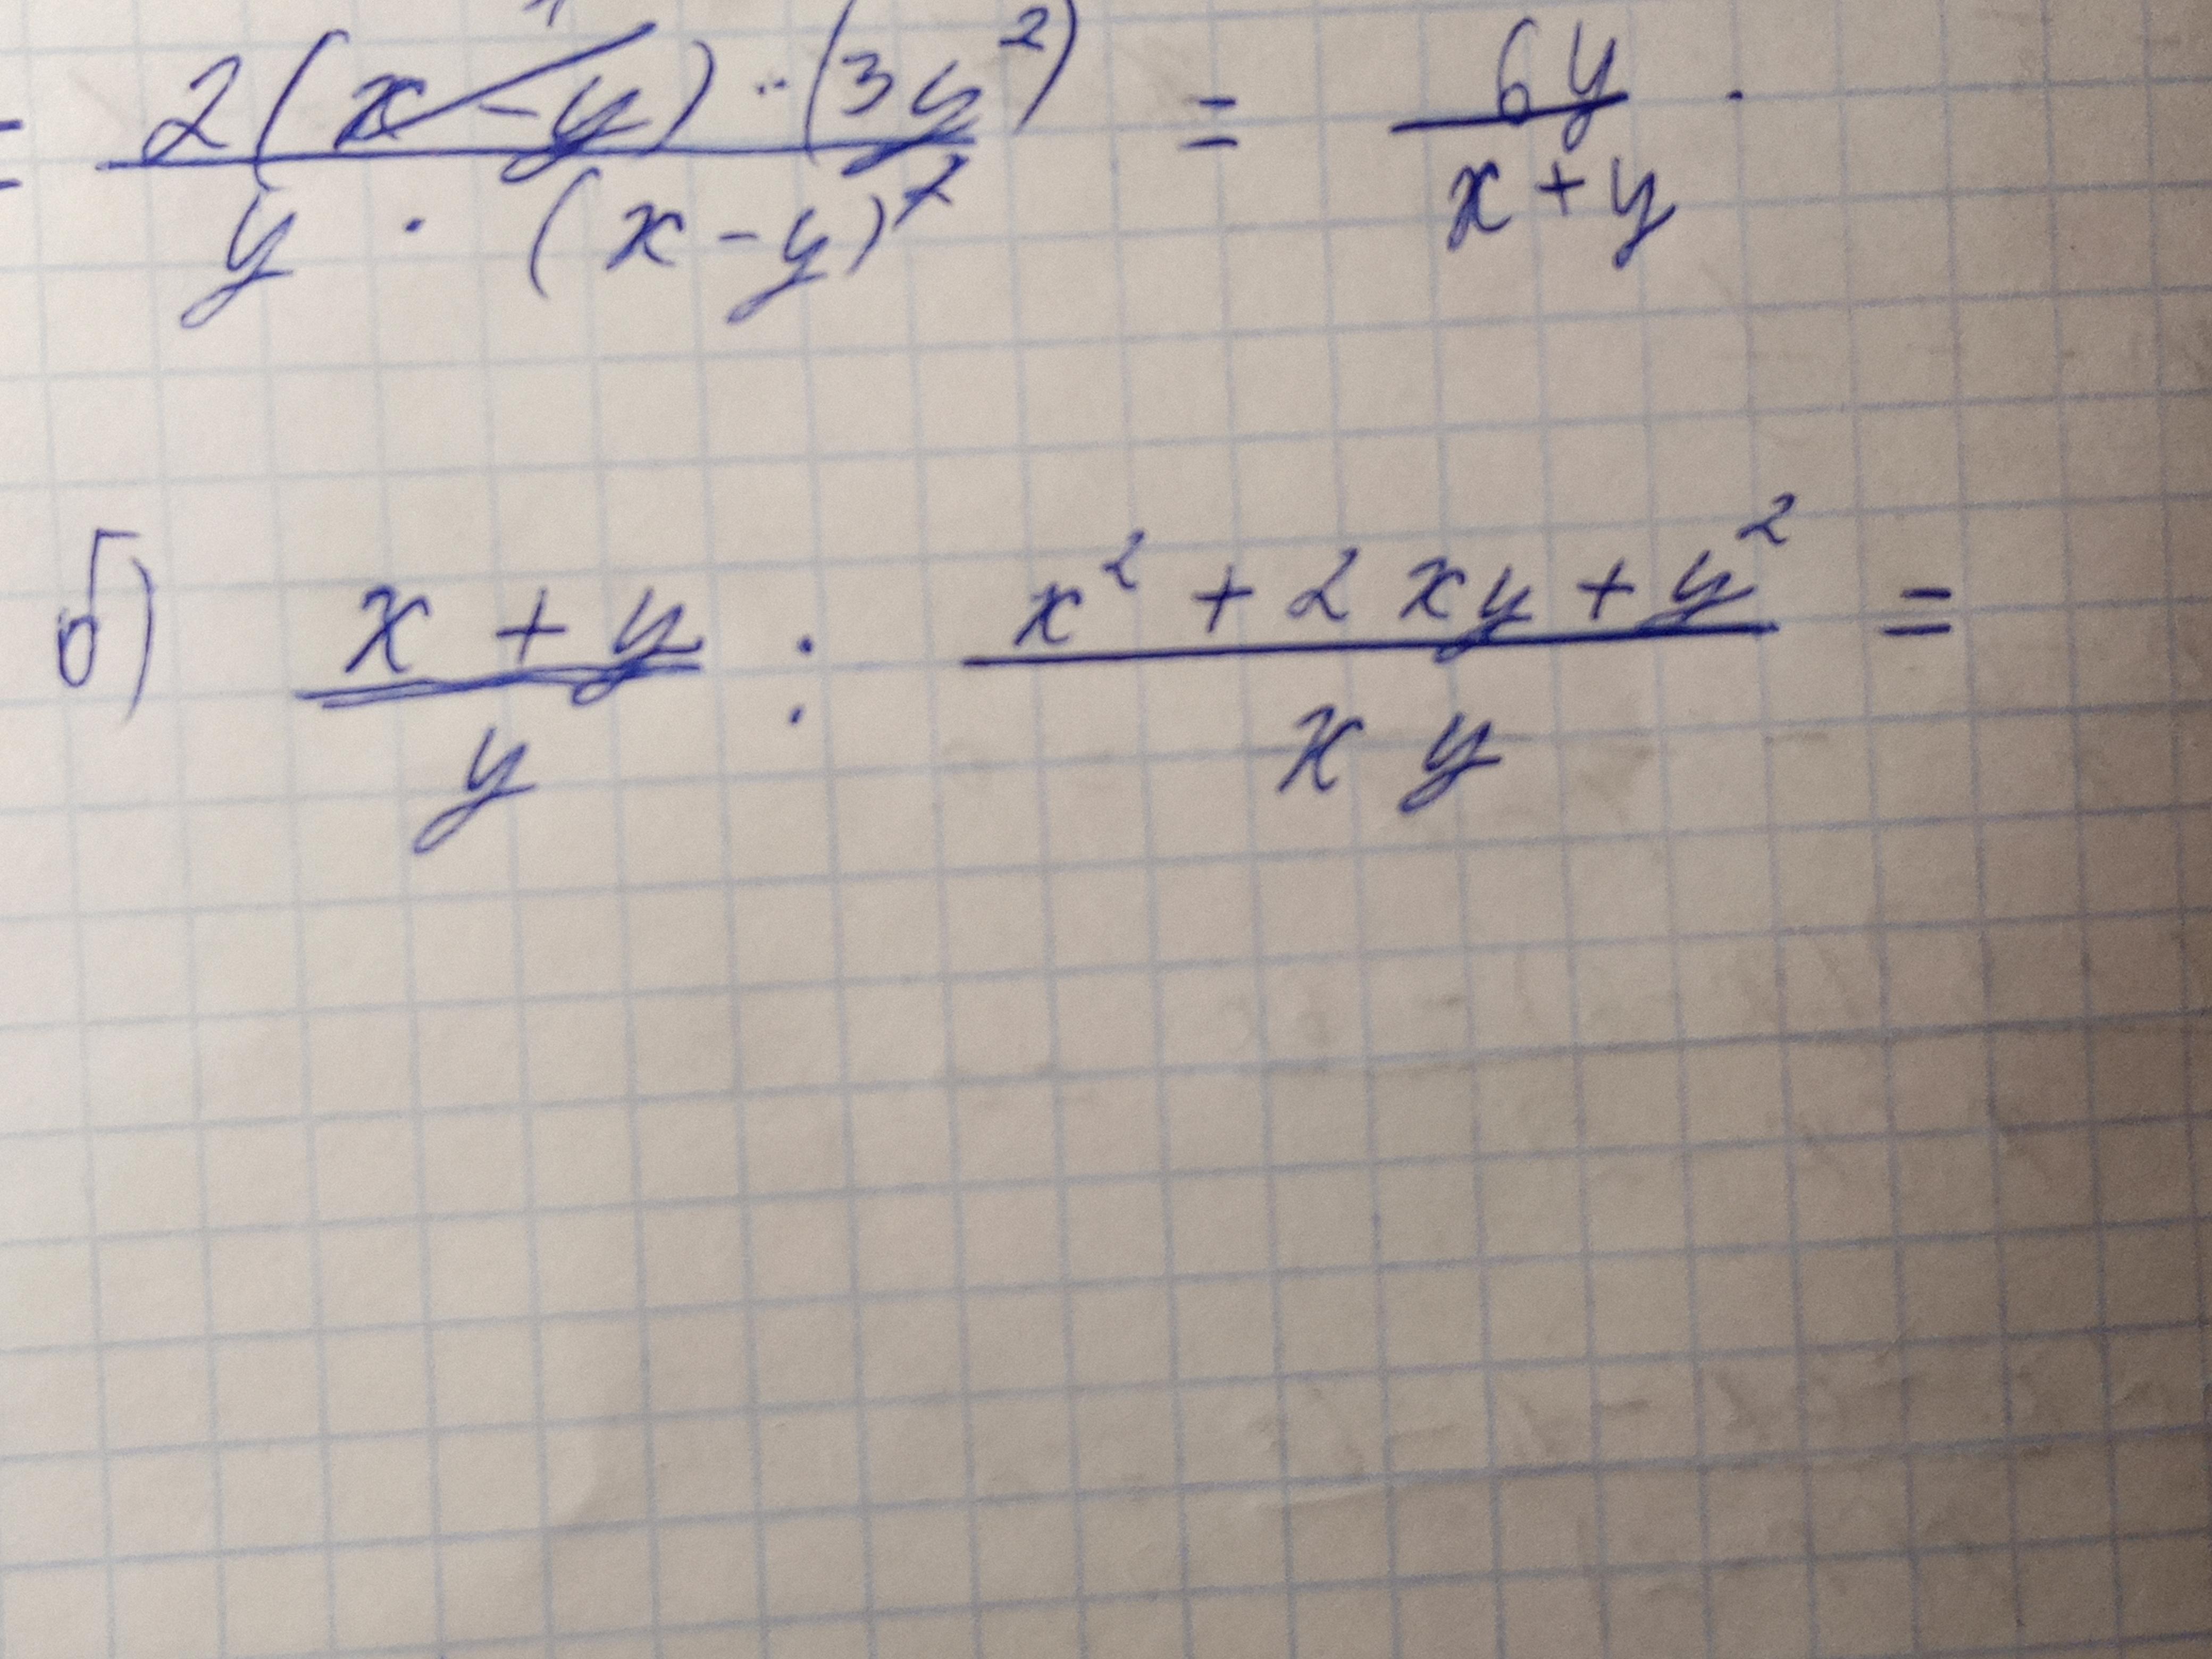 = 2(x-y)·(3y²) / y · (x-y)² = 6y / x+y .
б) x+y / y : x²+2xy+y² / xy =